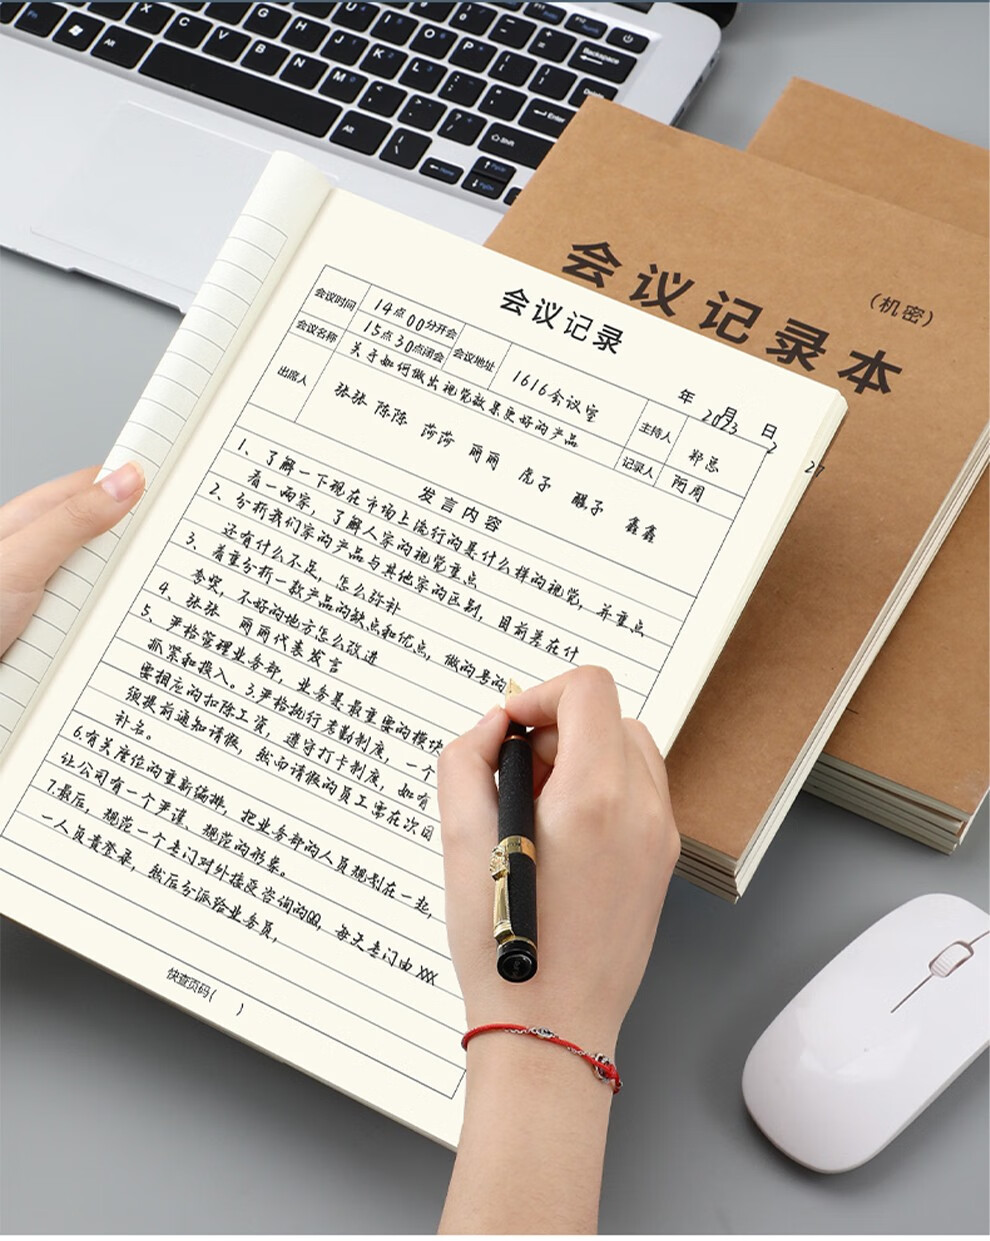 会议记录本
（机密）
会议记录
年 月 日
2023 2 27
会议时间 14点00分开会
15点30点闭会
会议地址 1616会议室
主持人 郑总
会议名称 关于如何做出视觉效果更好的产品
记录人 阿周
出席人 张张 陈陈 莎莎 丽丽 虎子 鑫鑫
发言内容
1、了解一下现在市场上流行的是什么样的视觉，并重点
看一两家，了解人家的视觉重点
2、分析我们家的产品与其他家的区别，目前差在什
还有什么不足，怎么弥补
3、着重分析一款产品的缺点和优点，做的
夸奖，不好的地方怎么改进
4、张张 丽丽代表发言
5、严格管理业务部，业务是最重要的模块
抓紧和投入。3.严格执行考勤制度，一个
要相应的扣除工资，遵守打卡制度，如有
须提前通知请假，然而请假的员工需在次日
补名。
6.有关座位的重新编排，把业务部的人员规划在一起，
让公司有一个严谨、规范的形象。
7.最后，规范一个专门对外接受咨询的QQ，每天专门由XXX
一人负责登录，然后分派给业务员，
快查页码( )
Backspace
Delete
Enter
Shift
Alt
Alt
X C V B N M
G H J K L
U I O P